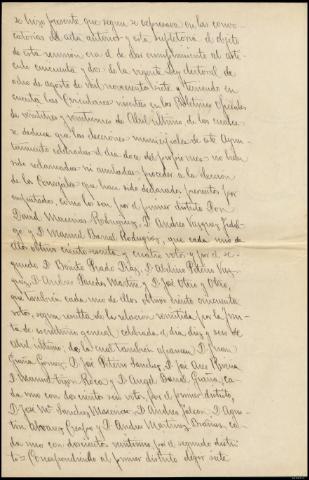 se hizo presente que segun se expresaba en las convo-
catorias del acta anterior y esta supletoria el objeto
de esta reunion era el de dar cumplimiento al arti-
culo cincuenta y dos de la vigente Ley electoral de
ocho de agosto de mil novecientos siete y teniendo en
cuenta las Circulares insertas en los Boletines oficiales
de veintitres y veintinueve de Abril último de los cuales
se deduce que las elecciones municipales de este Ayun-
tamiento celebradas el dia doce del propio mes no han
sido reclamadas ni anuladas, proceder a la eleccion
de los Concejales que han sido declarados presuntos por
empatados, como lo son por el primer distrito Don
David Macenras Rodriguez, D. Andres Vazquez
y D. Manuel Bernal Rodriguez, que cada uno de
ellos obtuvo ciento sesenta y cuatro votos y por el se-
gundo D. Benito Prado Diaz, D. Abelino
D. Andres Pareda Martin y D. José Otero y Otero,
que tambien cada uno de ellos obtuvo ciento cincuenta
votos, segun resulta de la relacion remitida por la Jun-
ta de escrutinio general, celebrada el dia diez y seis de
Abril último, de la cual tambien aparecen D. Juan
Graña Gomez, D. José Piñeiro Sanchez, D. José
D. Manuel Roca y D. Angel Bande Graña, ca-
da uno con doscientos seis votos por el primer distrito,
D. José Mª Sanchez D. Andres D. Agus-
tin Alvarez Crespo y D. Andres Martinez cada
uno con doscientos veintiuno por el segundo distri-
to = Correspondiendo al primer distrito elegir siete